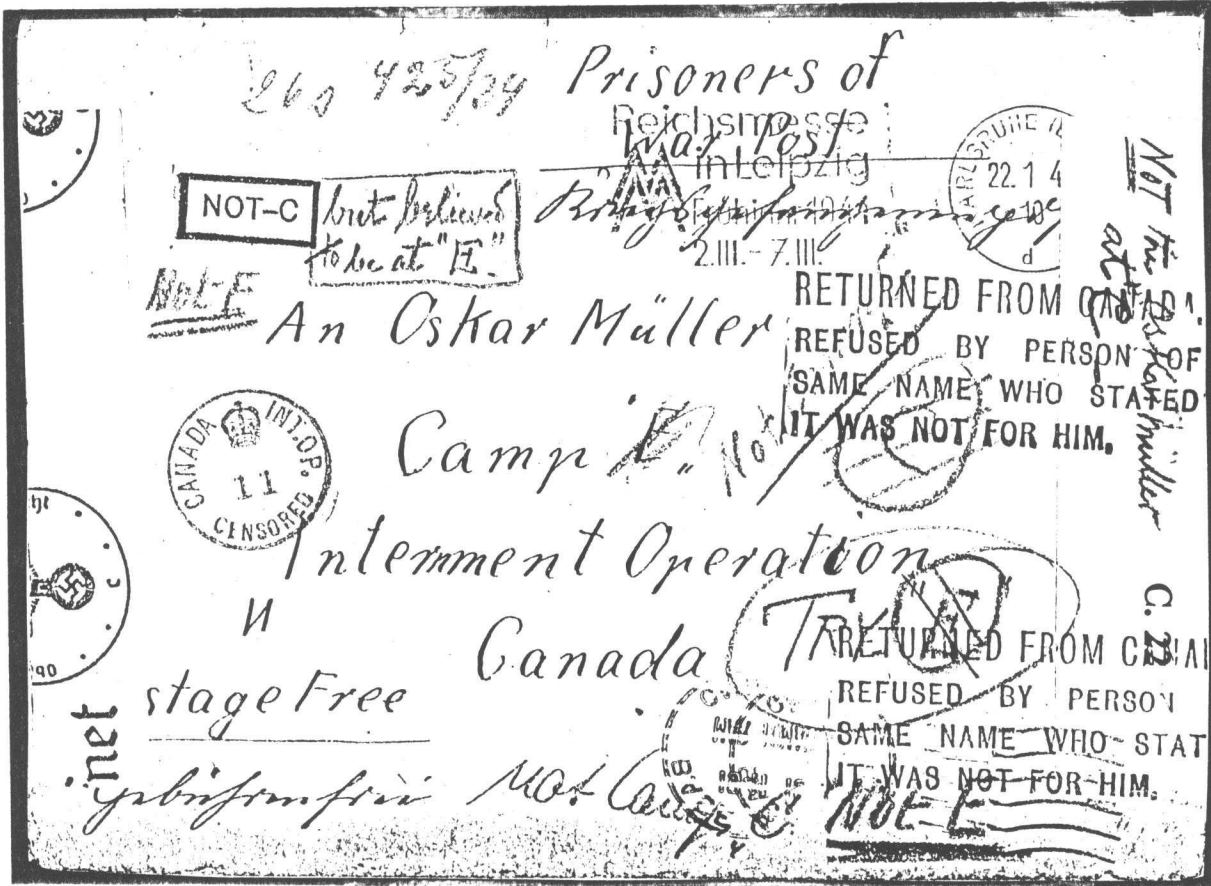 26s 425/34
Prisoners of
War Post
Reichsmesse
in Leipzig
Frühjahr 1941
2.III.-7.III.
KARLSRUHE
22.1 4
10
d
NOT-C
but believed
to be at "E."
Kriegsgefangenenpost
Not-E
An Oskar Müller
RETURNED FROM CANADA.
REFUSED BY PERSON OF
SAME NAME WHO STATED
IT WAS NOT FOR HIM.
CANADA INT.OP.
11
CENSORED
Camp E.
Internment Operation
Canada
TRY
RETURNED FROM CANA
REFUSED BY PERSON
SAME NAME WHO STAT
IT WAS NOT FOR HIM.
stage Free
gebührenfrei
Not Camp
Not-E
NOT this Oskar Müller
at
C. 22
net